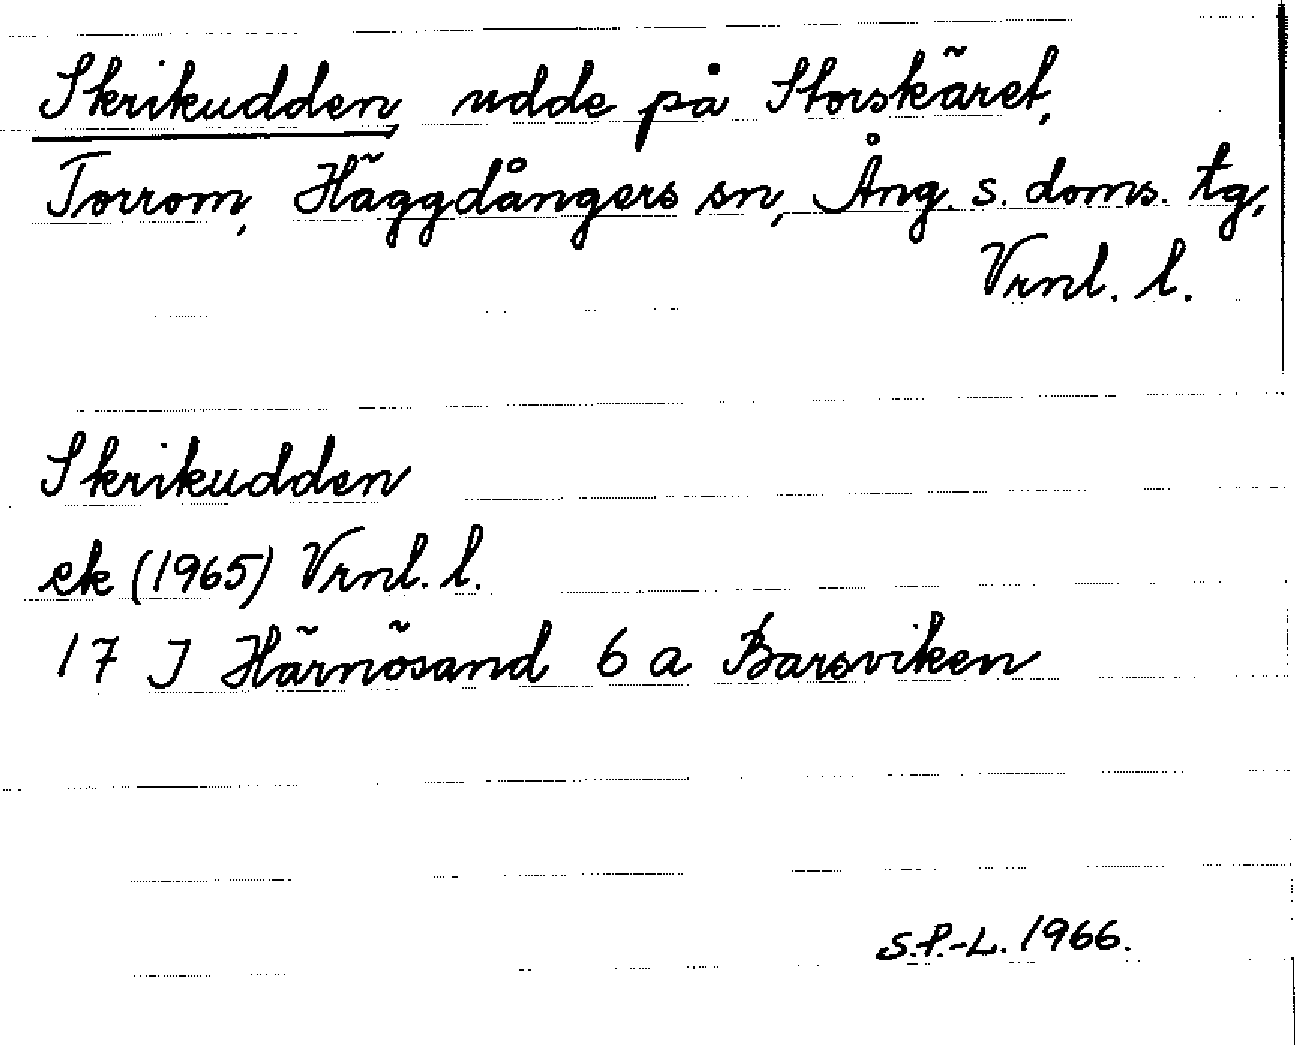 Skrikudden, udde på Storskäret,
Torrom, Häggdångers sn, Ång. s. doms. tg,
Vrnl. l.
Skrikudden
ek (1965) Vrnl. l.
17 J Härnösand 6 a Barsviken
S.P.-L. 1966.